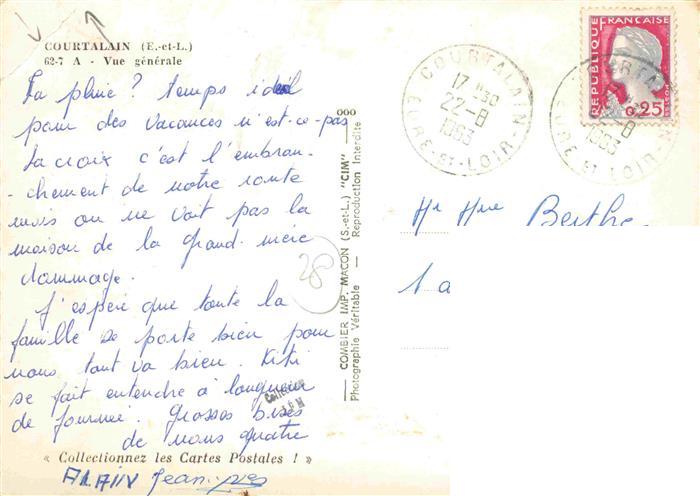 COURTALAIN (E.-et-L.)
62-7 A - Vue générale
La pluie ? temps idéal
pour des vacances n'est-ce-pas
La croix c'est l'embran-
-chement de notre route
mais on ne voit pas la
maison de la grand-mère
dommage.
J'espère que toute la
famille se porte bien pour
nous tout va bien. Kiki
se fait entendre à longueur
de journée. Grosses bises
de nous quatre
« Collectionnez les Cartes Postales ! »
ALAIN Jean-
ooo
COMBIER IMP. MACON (S.-et-L.) "CIM"
Photographie Véritable — Reproduction Interdite
28
Collection
COURTALAIN
17 H30
22-8
1963
EURE-ET-LOIR
REPUBLIQUE FRANCAISE
0,25
1963
EURE ET LOIR
Mr Mme Berthe
1 a